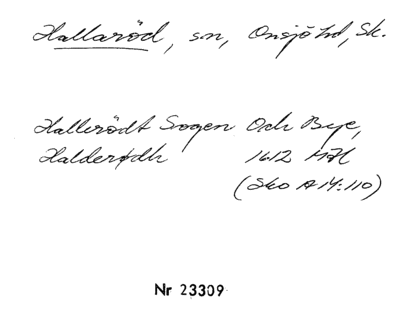 Hallaröd, sn, Onsjö hd, Sk.
Hallerödt Sogen Och Bye,
Halderødh 1612 MH
(Sko A 14:110)
Nr 23309